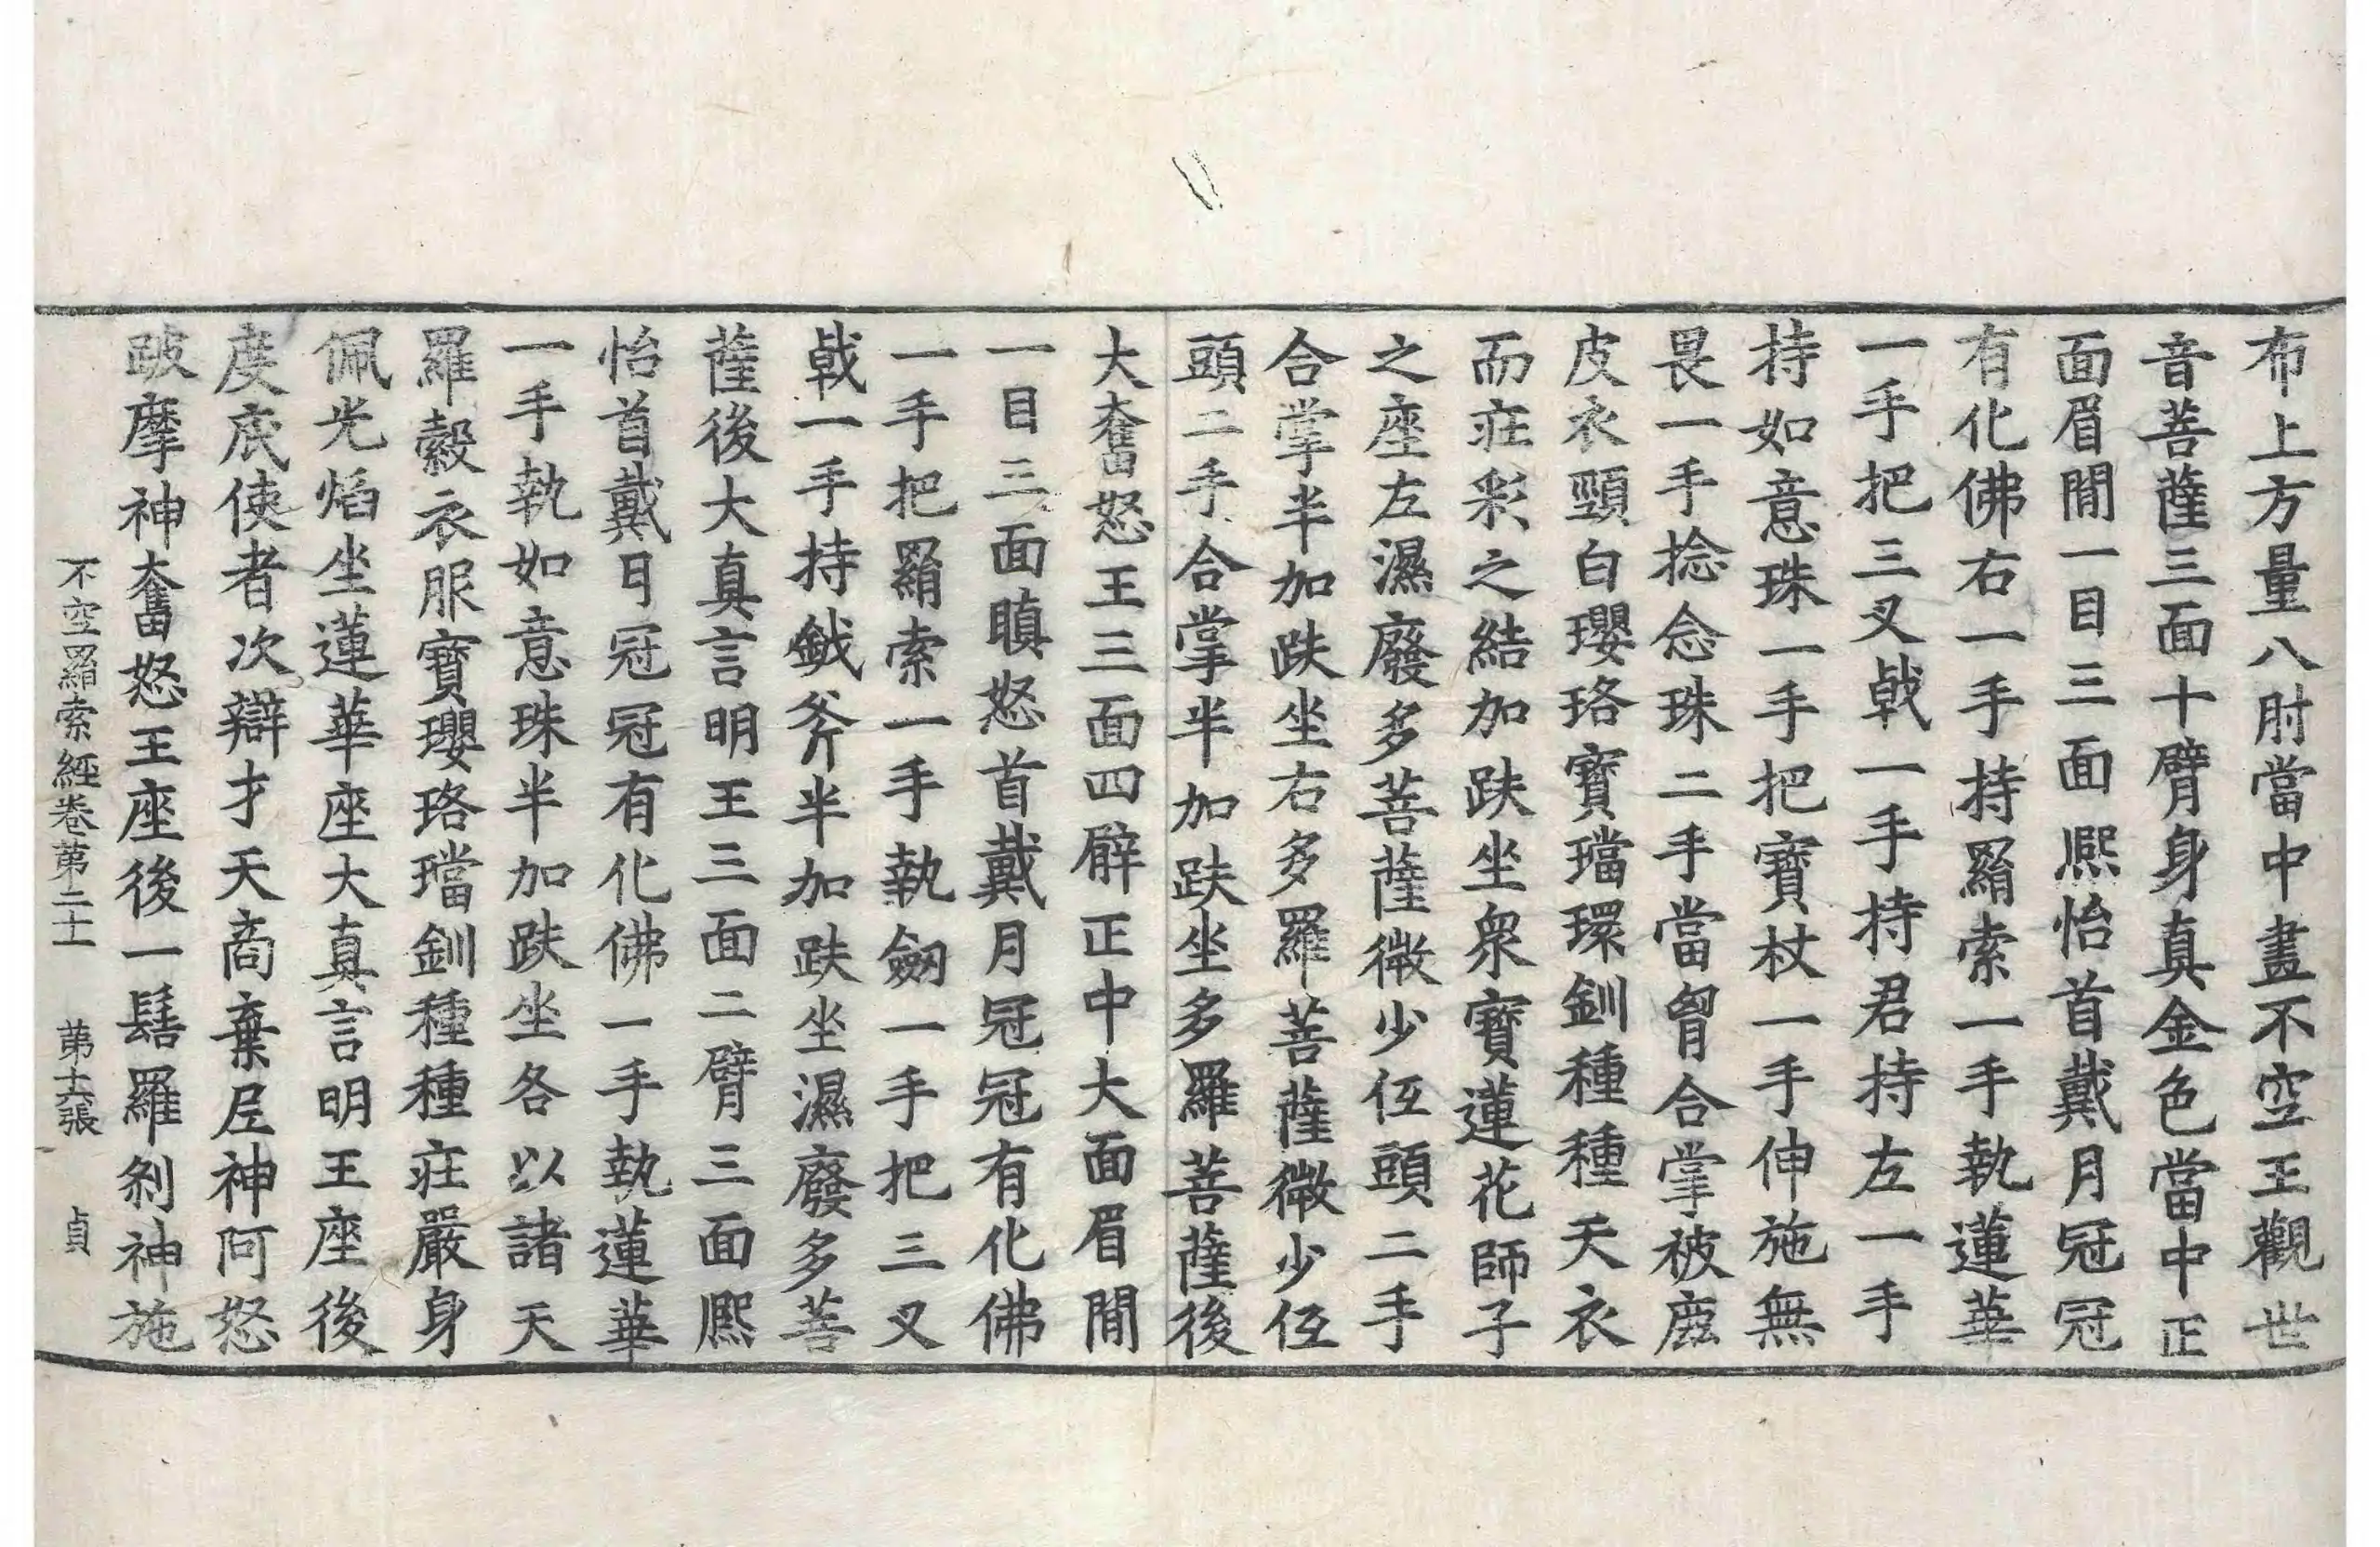 布上方量八肘當中畫不空王觀世
音菩薩三面十臂身真金色當中正
面眉間一目三面熈怡首戴月冠冠
有化佛右一手持羂索一手執蓮華
一手把三叉戟一手持君持左一手
持如意珠一手把寶杖一手伸施無
畏一手捻念珠二手當胷合掌被鹿
皮衣頸白瓔珞寶璫環釧種種天衣
而莊彩之結加趺坐衆寶蓮花師子
之座左濕廢多菩薩微少伍頭二手
合掌半加趺坐右多羅菩薩微少伍
頭二手合掌半加趺坐多羅菩薩後
大奮怒王三面四臂正中大面眉間
一目三面瞋怒首戴月冠冠有化佛
一手把羂索一手執劒一手把三叉
戟一手持鉞斧半加趺坐濕廢多菩
薩後大真言明王三面二臂三面熈
怡首戴月冠冠有化佛一手執蓮華
一手執如意珠半加趺坐各以諸天
羅縠衣服寶瓔珞璫釧種種莊嚴身
佩光焰坐蓮華座大真言明王座後
度底使者次辯才天商棄尼神阿怒
跛摩神奮怒王座後一髻羅刹神施
不空羂索經卷第二十　第十六張　貞